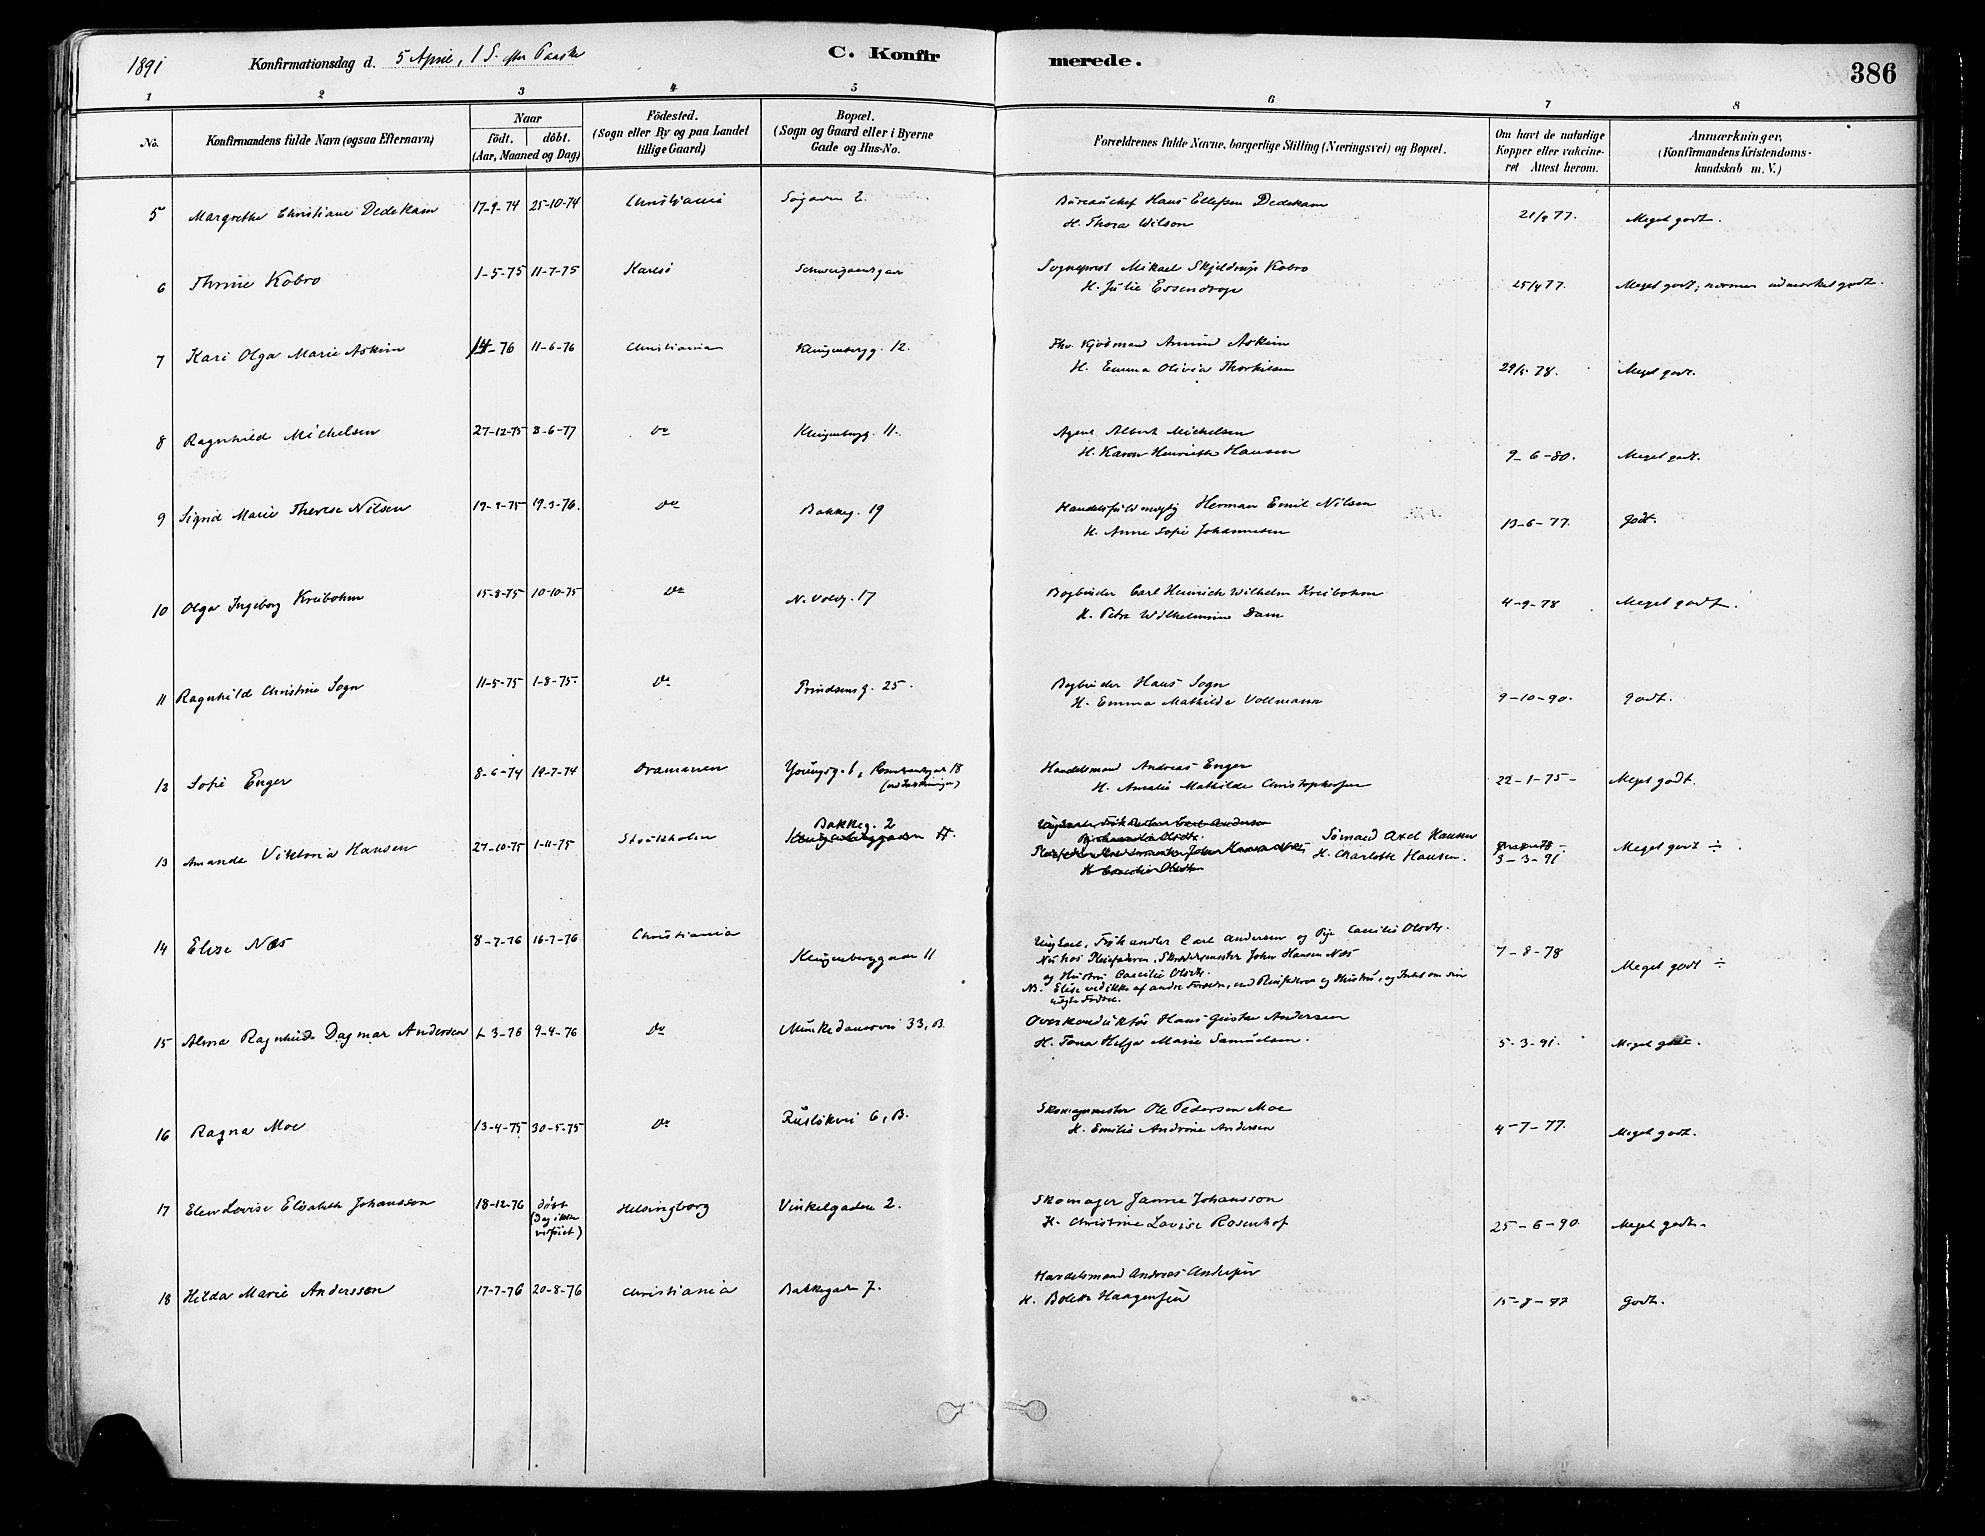 1891 Konfirmationsdag d. 5 April, 1 S. efter Paaske C. Konfirmerede. 386
1 2 3 4 5 6 7 8
No. Konfirmandens fulde Navn (ogsaa Efternavn) Naar födt. döbt. (Aar, Maaned og Dag) Födested. (Sogn eller By og paa Landet tillige Gaard) Bopæl. (Sogn og Gaard eller i Byerne Gade og Hus-No. Forældrenes fulde Navne, borgerlige Stilling (Næringsvei) og Bopæl. Om havt de naturlige Kopper eller vakcineret Attest herom. Anmærkninger. (Konfirmandens Kristendomskundskab m. V.)
5 Margrethe Christiane Dedekam 17-9-74 25-10-74 Christiania Bureauchef Hans Ellefsen Dedekam
H. Thora Wilson 77. Meget godt.
6 Thrine Kobro 1-5-75 11-7-75 Karlsö Schweigaardsgade Sogneprest Mikael Skjeldrup Kobro
H. Julie Essendrop 77. Meget godt; nærmer udmærket godt.
7 Kari Olga Marie Askim 76 11-6-76 Christiania Klingenbergg. 12. Fhv. Askim
H. Emma Olivia Thorkilsen 78. Meget godt.
8 Ragnhild Michelsen 27-12-75 8-6-77 Do Klingenbergg. 11. Agent Albert Michelsen
H. Karen Henriette Hansen 9-6-80. Meget godt.
9 Sigrid Marie Therese Nilsen 19-9-75 19-3-76. Do Bakkeg. 19 Handelsfuldmægtig Herman Emil Nilsen
H. Anne Sofie Johannesen 13-6-77. Godt.
10 Olga Ingeborg Kreibohm 15-8-75 10-10-75 Do N. Voldg. 17 Bogbinder Carl Heinrich Wilhelm Kreibohm
H. Petra Wilhelmine Dam 4-9-78 Meget godt.
11 Ragnhild Christine Sogn 11-5-75 1-8-75. Do Prindsensg. 25. Bogbinder Hans Sogn
H. Emma Mathilde Vollmann 9-10-90. Godt.
12 Sofie Enger 8-6-74 19-7-74 Drammen Youngsg. 6, 18 Handelsmand Andreas Enger
H. Amalie Mathilde Christophersen 22-1-75- Meget godt.
13 Amanda Viktoria Hansen 27-10-75 1-11-75 Stockholm Bakkeg. 2 Sömand Axel Hansen
H. Charlotte Hansen. 3-3-91 Meget godt ÷
14 Elise Næs 8-7-76 16-7-76 Christiania Klingenberggaden 11 Ungkarl, Carl Andersen og Pige Cæcilie Olsdtr.
Nu hos Pleiefaderen, Skræddermester John Hansen Næs
og Hustru Cæcilie Olsdtr. 7-8-78 Meget godt ÷
NB. Elise ved ikke af andre Forældre, end Pleiefaderen og Hustru, og Intet om sin
uægte Fødsel.
15 Alma Ragnhild Dagmar Andersen 3-76 9-4-76 Do Munkedamsvei 33, B. Overkonduktör Hans Gustav Andersen
H. Tona Helga Marie Samuelsen. 5-3-91. Meget godt.
16 Ragna Moe 13-4-75 30-5-75 Do Ruslökvei 6, B. Skomagermester Ole Pedersen Moe
H. Emilie Andrine Andersen 4-7-77. Meget godt.
17 Elen Lovise Elisabeth Johansson 18-12-76 döbt (Dag ikke ) Helsingborg Vinkelgaden 2. Skomager Janne Johansson
H. Christine Lovise Rosenhof 25-6-90 Meget godt.
18 Hilda Marie Andersson 17-7-76 20-8-76 Christiania Bakkegaden 7. Handelsmand Andreas Andersen
H. Bolette Haagensen 15-8-97 Godt.